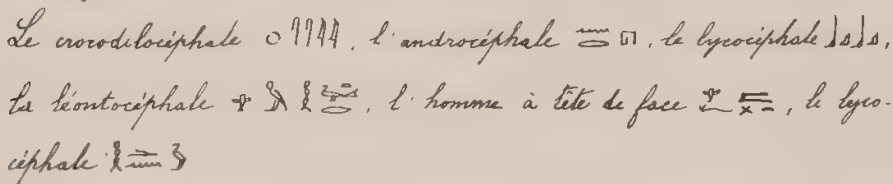 Le crocodilocéphale, l'androcéphale, le lycocéphale,
la léontocéphale, l'homme à tête de face, le lyco-
céphale